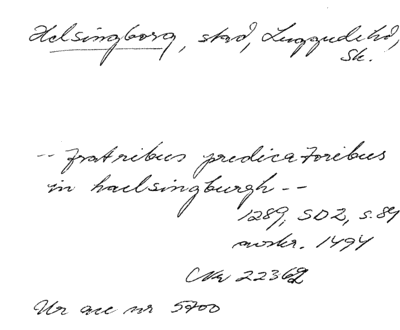 Helsingborg, stad, Luggude hd,
Sk.
-- fratribus predicatoribus
in haelsingburgh --
1289, SD2, s. 89
avskr. 1494
Ur acc nr 5700